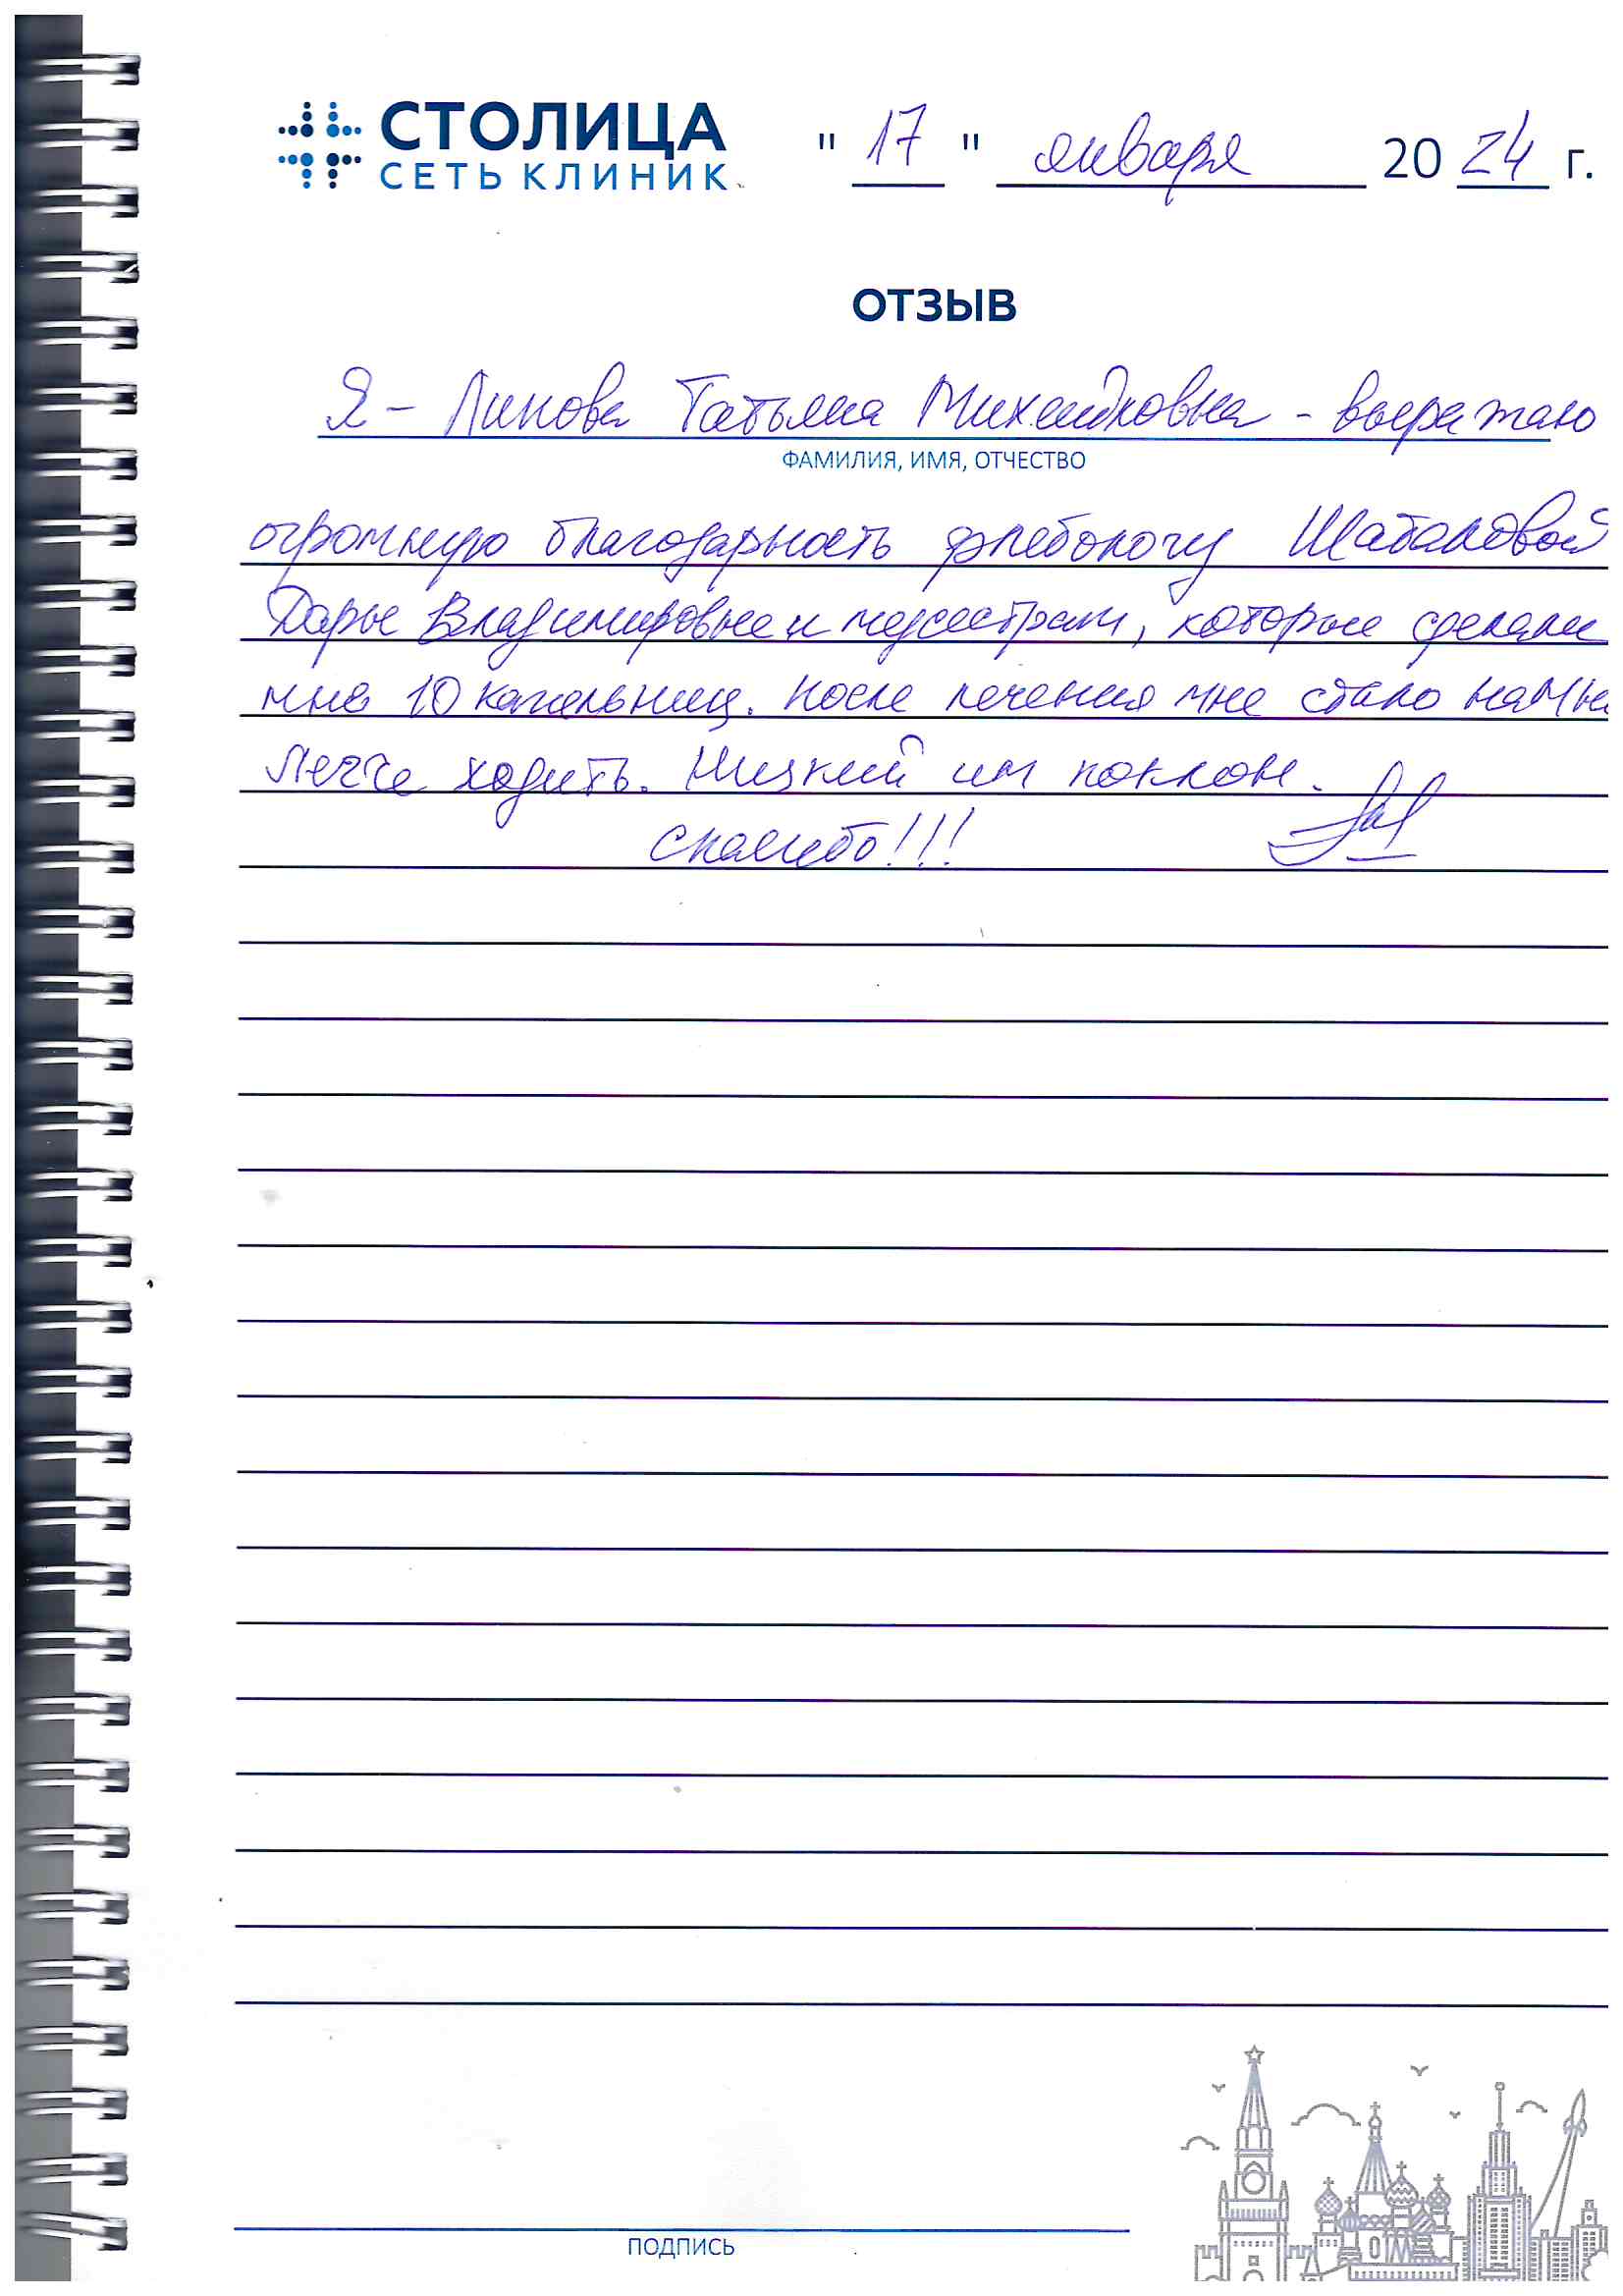 СТОЛИЦА
СЕТЬ КЛИНИК
" 17 " января 2024 г.
ОТЗЫВ
Я - Линова Татьяна Михайловна - выражаю
ФАМИЛИЯ, ИМЯ, ОТЧЕСТВО
огромную благодарность флебологу Шабаловой
Дарье Владимировне и медсестрам, которые сделали
мне 10 капельниц. После лечения мне стало
легче ходить. Низкий им поклон.
Спасибо!!!
ПОДПИСЬ